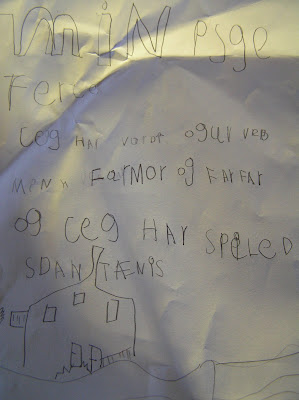 miN PSGE
FERE
CEG HAR VÆRDT OGUR VEB
MENN FARMOR Og FARFAR
Og CEG HAR SPELED
SDAN TÆNIS